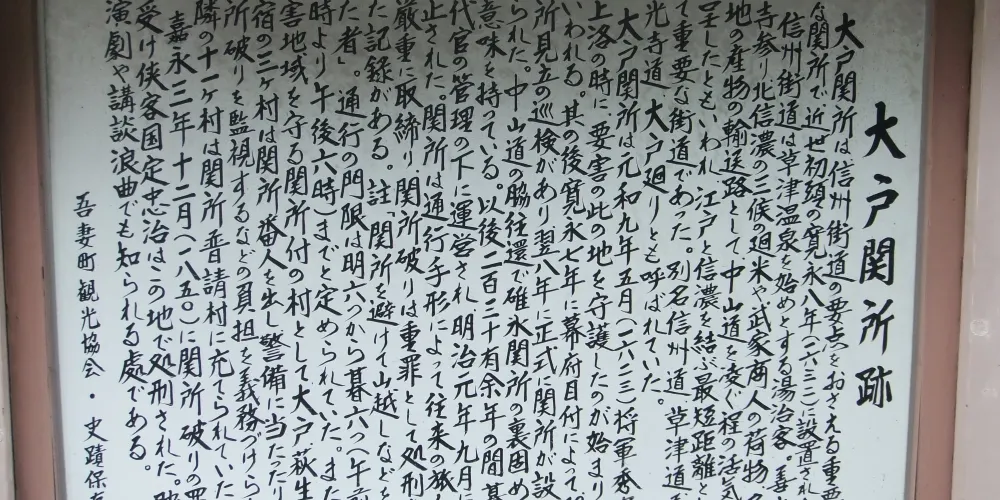 大戸関所跡
大戸関所は信州街道の要点をおさえる重要
な関所で近世初頭の寛永八年(一六三一)に設置され
信州街道は草津温泉を始めとする湯治客。善
寺参り北信濃の三候の廻米や武家商人の荷物
地の産物の輸送路として中山道を凌ぐ程の活気
呈したともいわれ江戸と信濃を結ぶ最短距離と
て重要な街道であった。別名信州道 草津道
光寺道 大戸廻りとも呼ばれていた。
大戸関所は元和九年五月(一六二三)将軍秀
上洛の時に、要害の此の地を守護したのが始まり
いわれる。其の後寛永七年に幕府目付によって
所見立の巡検があり、翌八年に正式に関所が設
られた。中山道の脇往還で碓氷関所の裏固め
意味を持っている。以後二百三十有余年の間其
代官の管理の下に運営され明治元年九月に
止された。関所は通行手形によって往来の旅人
厳重に取締り、関所破りは重罪として処刑
た記録がある。註「関所を避けて山越しなどを
た者」。通行の門限は明六つから暮六つ(午前
時より午後六時)までと定められていた。また
害地域を守る関所付の村として大戸、萩生
宿の三ヶ村は関所番人を出し警備に当たり
所破りを監視するなどの負担を義務づけら
隣の十一ヶ村は関所普請村に充てられていた
嘉永三年十二月(一八五〇)に関所破りの罪
受け侠客国定忠治はこの地で処刑された。
演劇や講談浪曲でも知られる處である。
吾妻町観光協会・史蹟保存